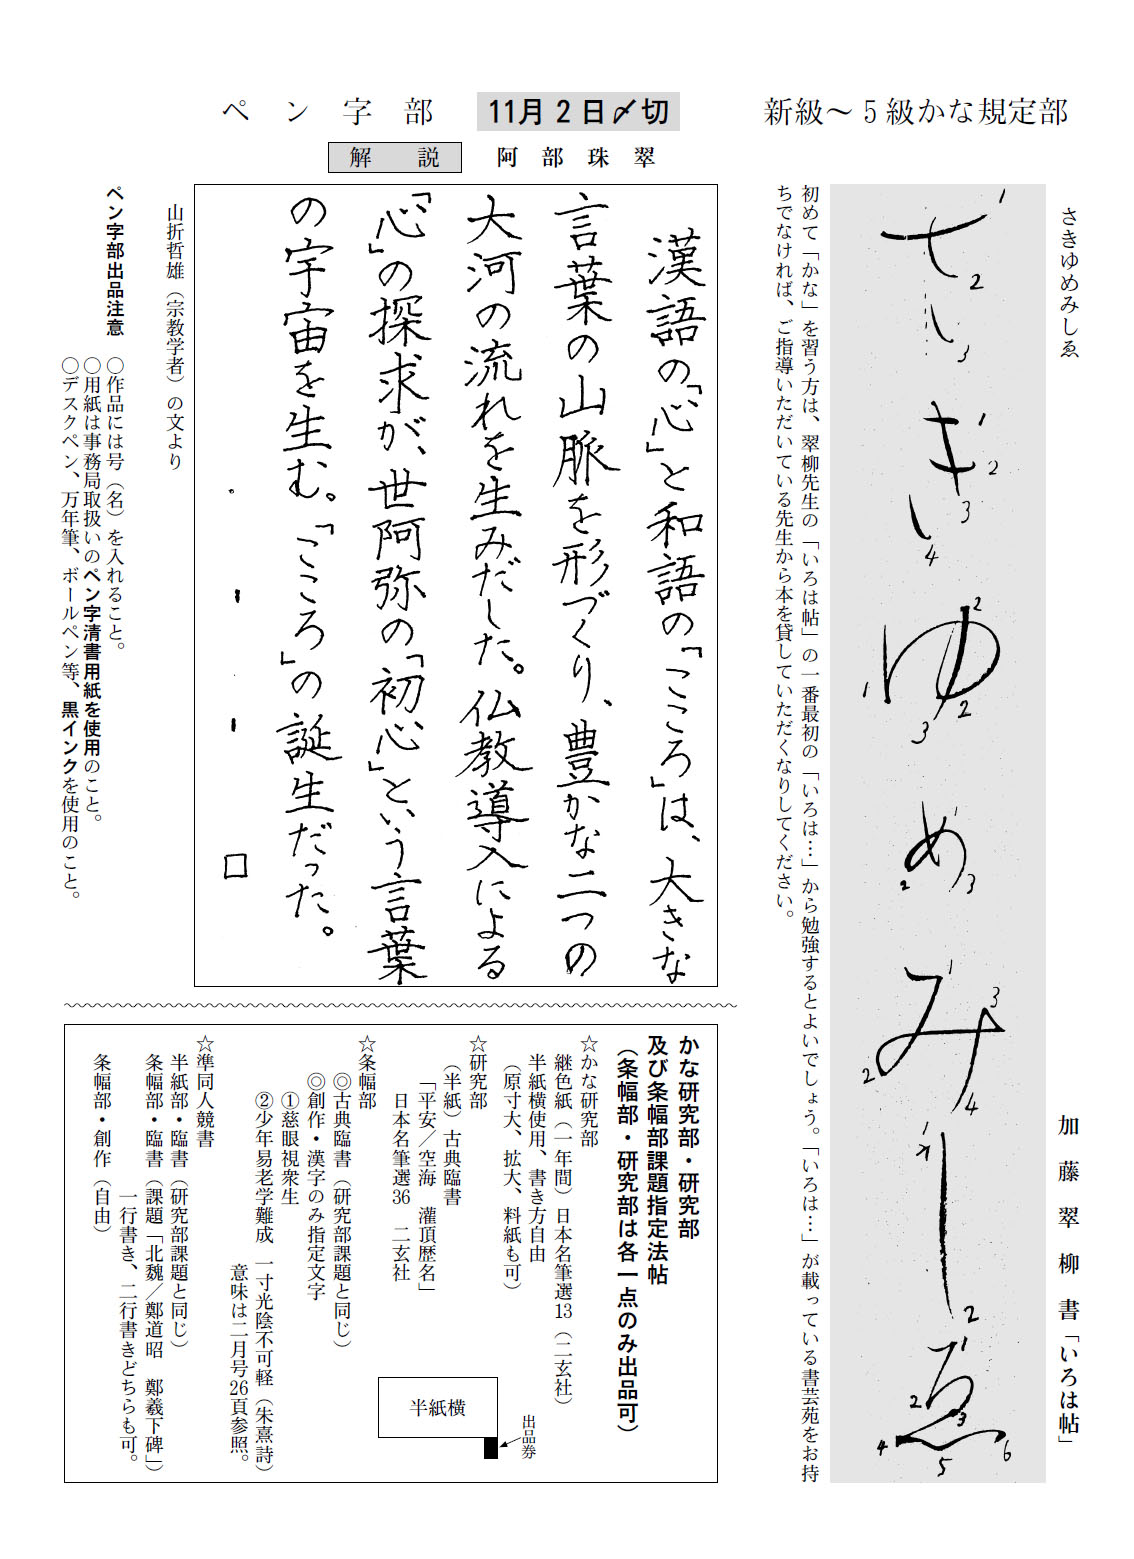 新級～5級かな規定部
さきゆめみしゑ
加藤翠柳書「いろは帖」
さ
き
ゆ
め
み
し
ゑ
初めて「かな」を習う方は、翠柳先生の「いろは帖」の一番最初の「いろは…」から勉強するとよいでしょう。「いろは…」が載っている書芸苑をお持
ちでなければ、ご指導いただいている先生から本を貸していただくなりしてください。
ペン字部
11月2日〆切
解説
阿部珠翠
漢語の「心」と和語の「こころ」は、大きな
言葉の山脈を形づくり、豊かな二つの
大河の流れを生みだした。仏教導入による
「心」の探求が、世阿弥の「初心」という言葉
の宇宙を生む。「こころ」の誕生だった。
山折哲雄（宗教学者）の文より
ペン字部出品注意
○作品には号（名）を入れること。
○用紙は事務局取扱いのペン字清書用紙を使用のこと。
○デスクペン、万年筆、ボールペン等、黒インクを使用のこと。
かな研究部・研究部
及び条幅部課題指定法帖
（条幅部・研究部は各一点のみ出品可）
☆かな研究部
継色紙（一年間）日本名筆選13（二玄社）
半紙横使用、書き方自由
（原寸大、拡大、料紙も可）
半紙横
出品券
☆研究部
（半紙）古典臨書
「平安／空海　灌頂歴名」
日本名筆選36　二玄社
☆条幅部
◎古典臨書（研究部課題と同じ）
◎創作・漢字のみ指定文字
①慈眼視衆生
②少年易老学難成　一寸光陰不可軽（朱熹詩）
意味は二月号26頁参照。
☆準同人競書
半紙部・臨書（研究部課題と同じ）
条幅部・臨書（課題「北魏／鄭道昭　鄭羲下碑」）
一行書き、二行書きどちらも可。
条幅部・創作（自由）